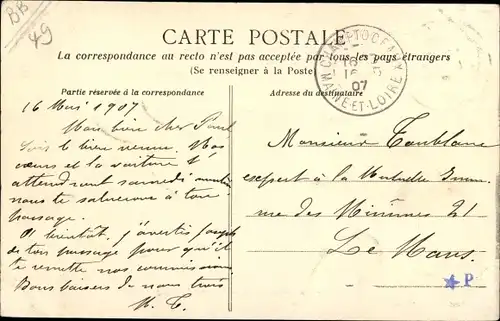 BB
49
CARTE POSTALE
La correspondance au recto n'est pas acceptée par tous les pays étrangers
(Se renseigner à la Poste)
Partie réservée à la correspondance
16 Mai 1907
Mon bien cher Paul
Sois le bien venu. Nos
cœurs et la voiture t'
attendront samedi
nous te saluerons à ton
passage.
A bientôt, j'avertis Joseph
de ton passage pour qu'il
te remette nos commissions
Bons baisers de nous trois
CHAMPTOCEAUX
MAINE-ET-LOIRE
07
Adresse du destinataire
Monsieur
expert à la Mutuelle
rue des Minimes 21
Le Mans
P